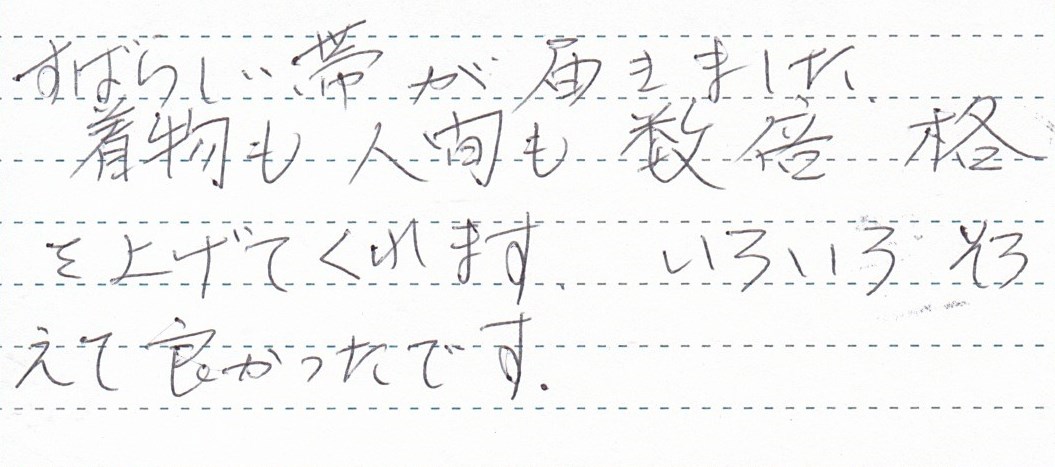 すばらしい帯が届きました、
着物も人間も数倍 格
を上げてくれます. いろいろそろ
えて良かったです.